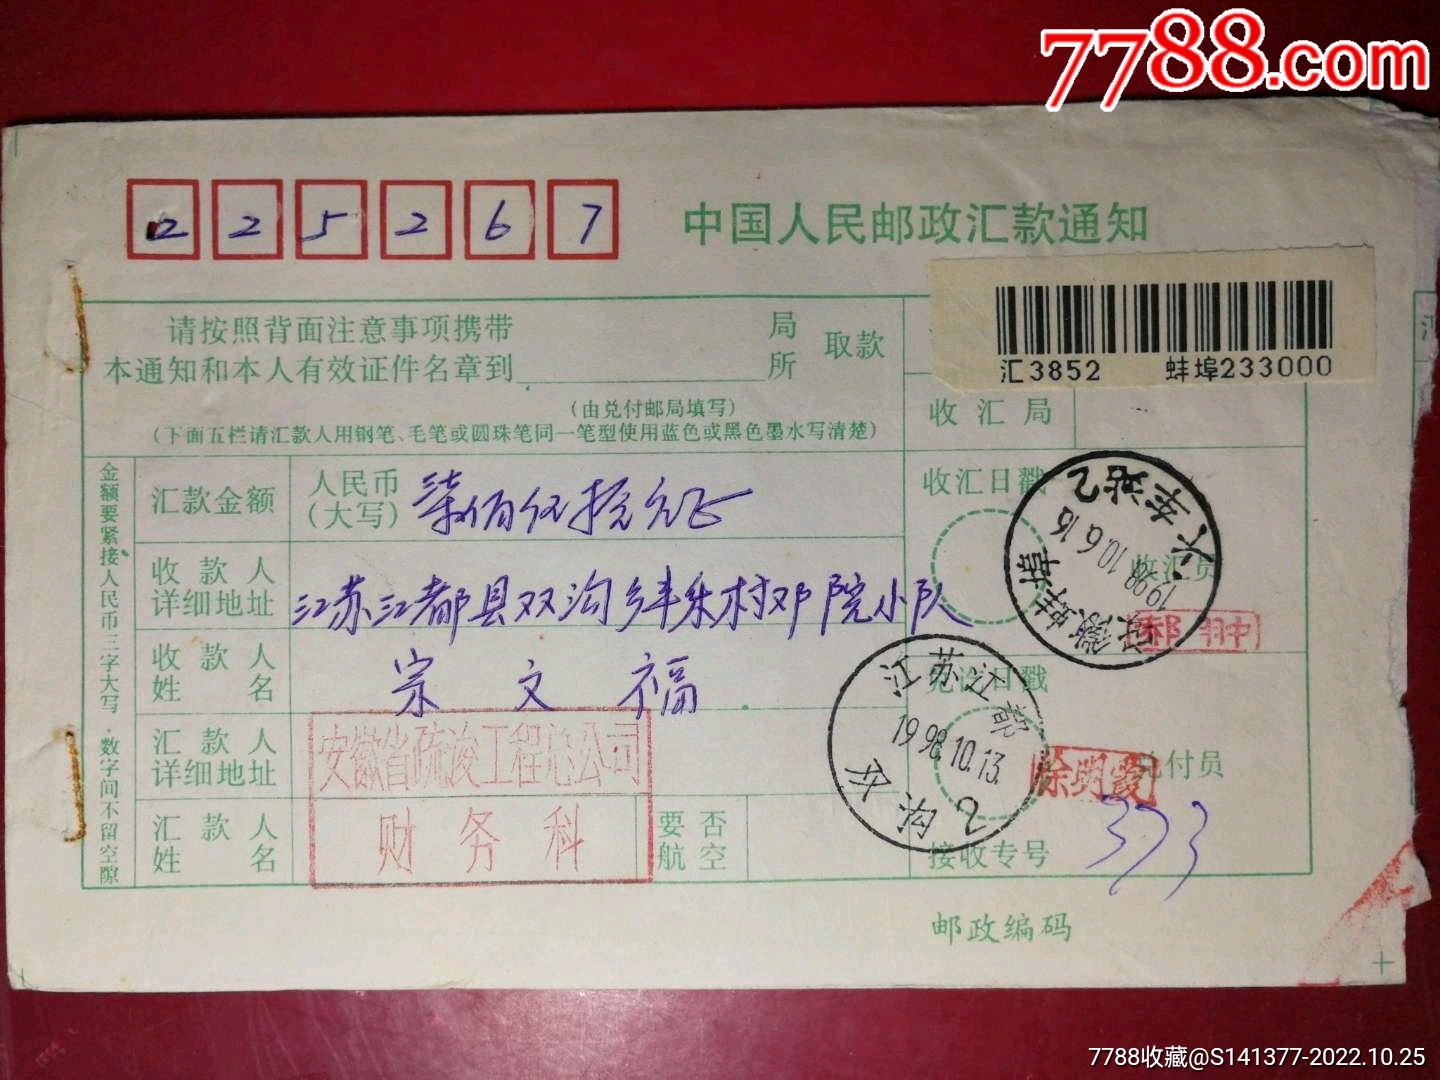 7788.com
225267
中国人民邮政汇款通知
请按照背面注意事项携带
本通知和本人有效证件名章到 局 所 取款
(由兑付邮局填写)
(下面五栏请汇款人用钢笔、毛笔或圆珠笔同一笔型使用蓝色或黑色墨水写清楚)
汇3852 蚌埠233000
收汇局
金额要紧接人民币三字大写，数字间不留空隙
汇款金额
人民币
(大写)
柒佰伍拾元正
收汇日戳
安徽蚌埠
1998.10.6.16
火车站乙
收汇员
收款人
详细地址
江苏江都县双沟乡丰乐村邓院小队
收款人
姓名
宗文福
兑付日戳
江苏江都
1998.10.13.
乙
汇款人
详细地址
安徽省疏浚工程总公司
兑付员
汇款人
姓名
财务科
要否
航空
接收专号
373
邮政编码
7788收藏@S141377-2022.10.25